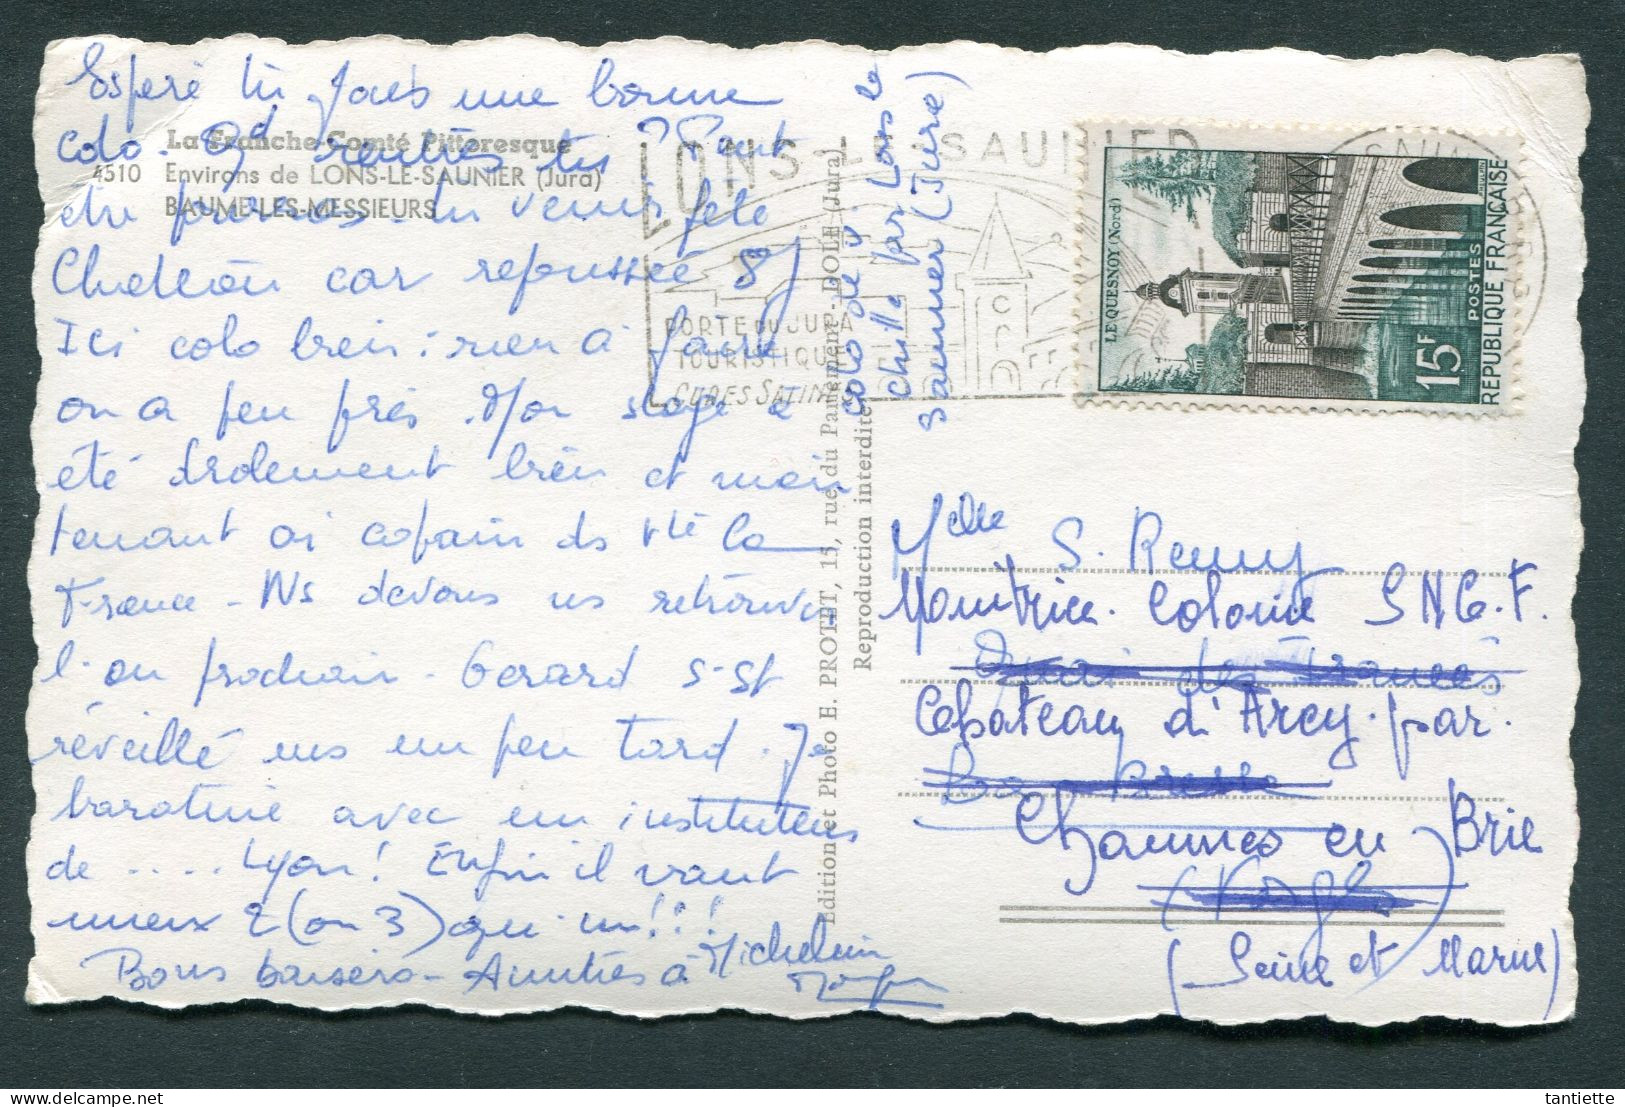 La Franche-Comté Pittoresque
4510 Environs de LONS-LE-SAUNIER (Jura)
BAUME-LES-MESSIEURS
Esperè tu fais une bonne
colo. Qd rentrès tu ? Peut
être pourras-tu venir fête
car repoussée 8j
Ici colo bien : rien à faire
ou à peu près. Mon stage a
été drolement bien et main
tenant ai copain ds tte la
France - Ns devons ns retrouver
l'an prochain. Gerard s'est
réveillé un peu tard. Je
baratine avec un instituteur
de .... Lyon ! Enfin il vaut
mieux 2 (ou 3) qu'un ! ! !
Bons baisers - Amitiés à
Micheline
colo de
Chille par Lons le
Saunier (Jura)
Edition et Photo E. PROTET, 15, rue du Parlement - DOLE (Jura)
Reproduction interdite
LONS-LE-SAUNIER
PORTE DU JURA
TOURISTIQUE
CURES SALINES
LE QUESNOY (Nord)
15F
POSTES
REPUBLIQUE FRANÇAISE
Melle S. Remy
Monitrice Colonie SNCF.
Château d'Arcy par
La Bresse
Chaumes en Brie
(Vosges)
(Seine et Marne)
tantiette